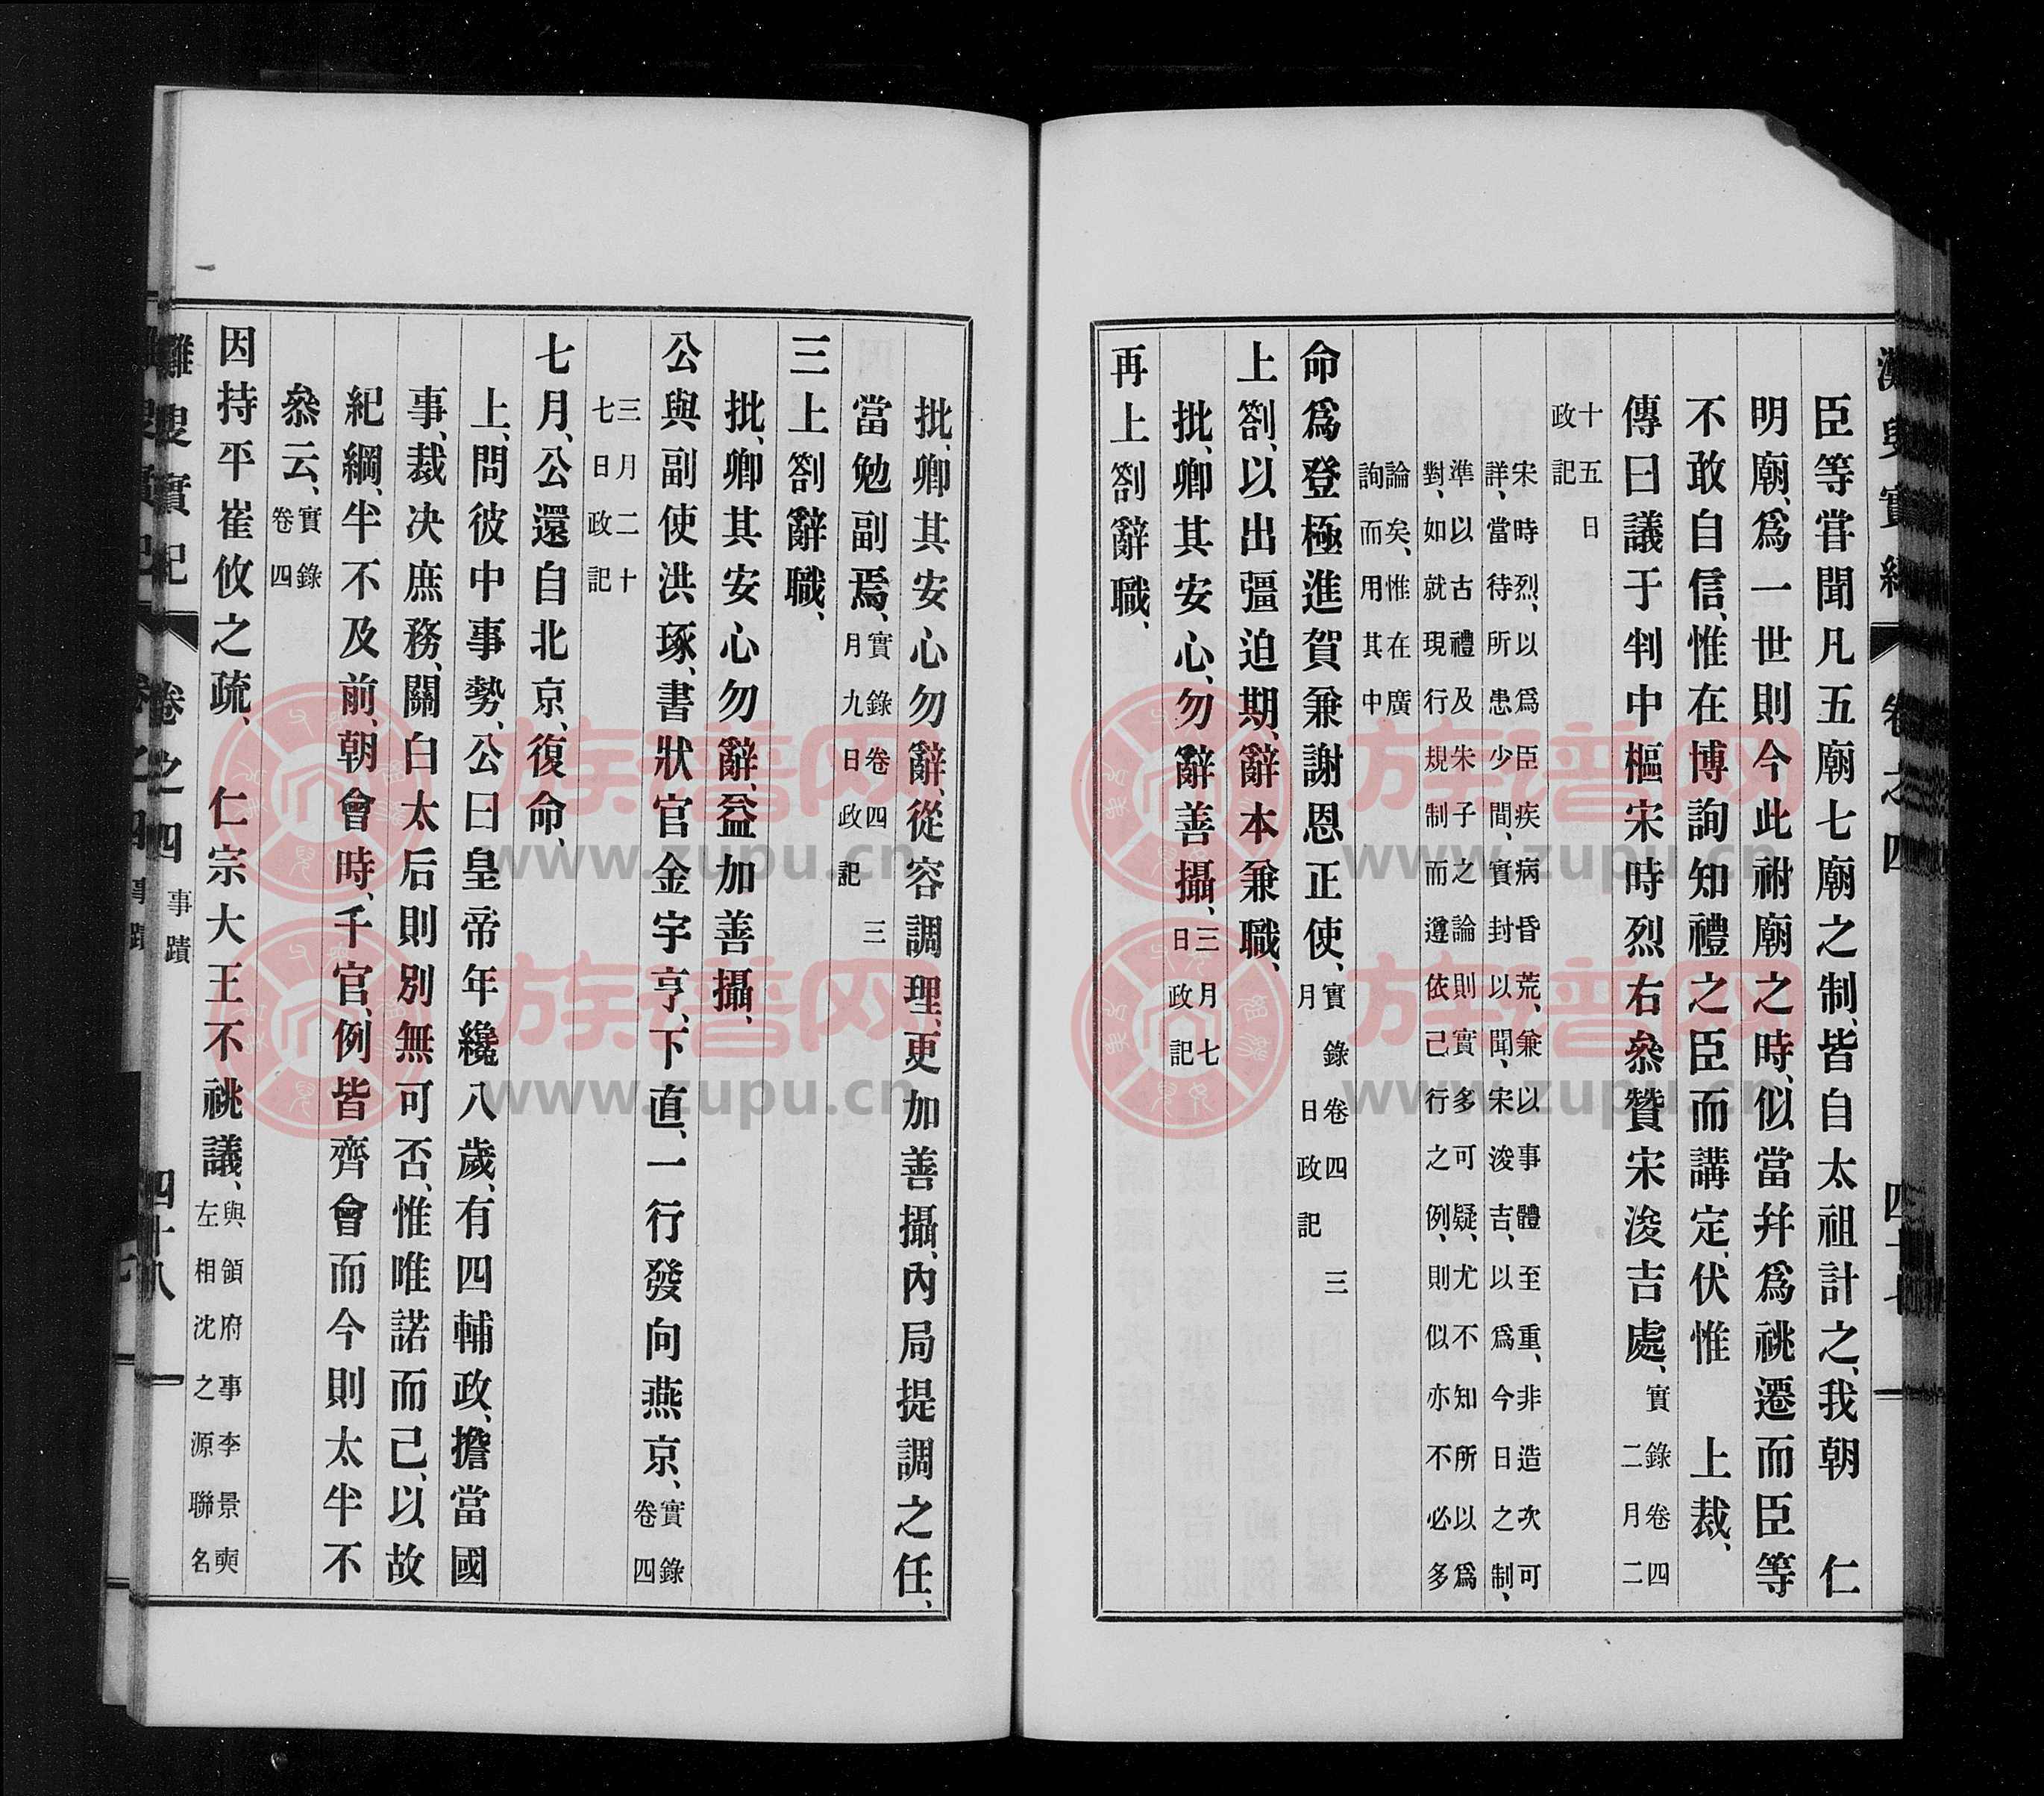 臣等嘗聞凡五廟七廟之制、皆自太祖計之、我朝 仁
明廟、爲一世則今此祔廟之時、似當幷爲祧遷而臣等
不敢自信、惟在博詢知禮之臣而講定、伏惟 上裁、
傳曰議于判中樞宋時烈右叅贊宋浚吉處、實錄卷四 二月二
十五日 政記
宋時烈、以爲臣疾病昏荒、兼以事體至重、非造次可
詳、當待所患少間、實封以聞、宋浚吉、以爲今日之制、
準以古禮及朱子之論則實多可疑、尤不知所以爲
對、如就現行規制而遵依已行之例、則似亦不必多
論矣、惟在廣
詢而用其中
命爲登極進賀兼謝恩正使、實錄卷四 三
月 日政記
上劄、以出疆迫期、辭本兼職、
批、卿其安心、勿辭善攝、三月七
日政記
再上劄辭職、
批、卿其安心勿辭、從容調理、更加善攝、內局提調之任、
當勉副焉、實錄卷四 三
月九日政記
三上劄辭職、
批、卿其安心勿辭、益加善攝、
公與副使洪琢、書狀官金宇亨、下直、一行發向燕京、實錄
卷四
三月二十
七日政記
七月、公還自北京、復命、
上、問彼中事勢、公曰皇帝年纔八歲、有四輔政、擔當國
事、裁决庶務、關白太后則別無可否、惟唯諾而已、以故
紀綱、半不及前、朝會時、千官、例皆齊會而今則太半不
叅云、實錄
卷四
因持平崔攸之疏、 仁宗大王不祧議、與領府事李景奭
左相沈之源聯名
卷之四 事蹟 四十八